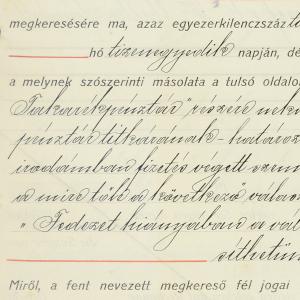 megkeresésére ma, azaz egyezerkilenczszáz
hó tizenegyedik napján, dé
a melynek szószerinti másolata a tulsó oldalon
Takarékpénztár" részére nek
pénztár titkárának - határoz
irodámban fizetés végett szem
a mire tőle a következő válas
"Fedezet hiányában a vál
sithetün
Miről, a fent nevezett megkereső fél jogai